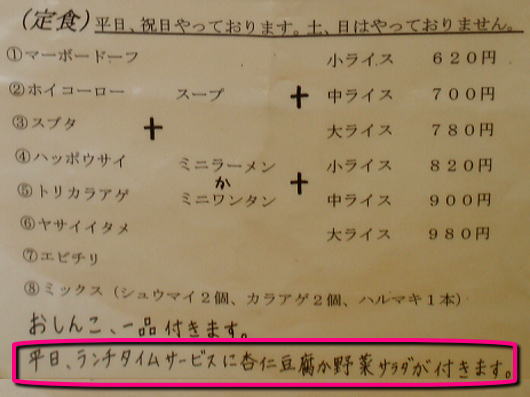 (定食)平日、祝日やっております。土、日はやっておりません。
①マーボードーフ 小ライス 620円
②ホイコーロー スープ + 中ライス 700円
③スブタ + 大ライス 780円
④ハッポウサイ ミニラーメン 小ライス 820円
か +
⑤トリカラアゲ ミニワンタン 中ライス 900円
⑥ヤサイイタメ 大ライス 980円
⑦エビチリ
⑧ミックス(シュウマイ2個、カラアゲ2個、ハルマキ1本)
おしんこ、一品付きます。
平日、ランチタイムサービスに杏仁豆腐か野菜サラダが付きます。